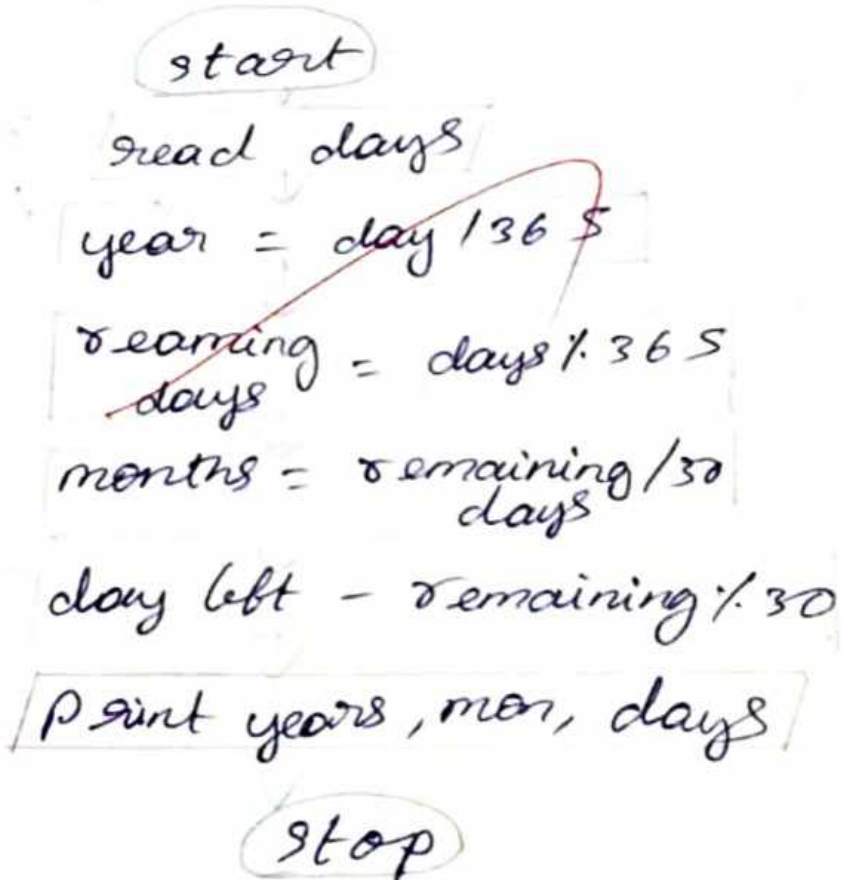 start
read days
year = day / 365
reaming days = days % 365
months = remaining days / 30
day left - remaining % 30
print years, mon, days
stop